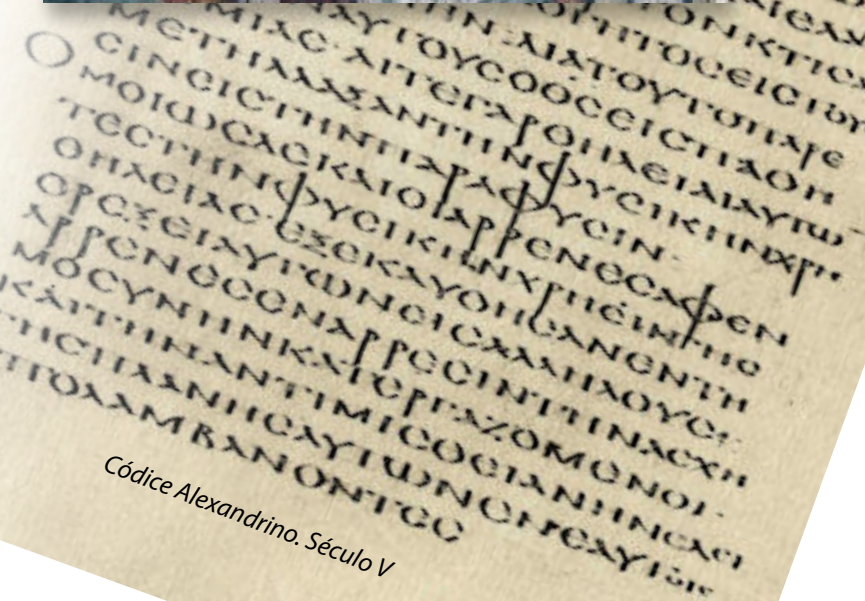 ΟΝΚΤΙC
ΟΓΗΤΟCΕΙC
ΗΝ:ΔΙΑΤΟΥΤΟΠΑΡΕ
ΑΥΤΟΥCΟΘCΕΙCΠΑΘΗ
ΜΙΑC·ΑΙΤΕΓΑΡΘΗΛΕΙΑΙΑΥΤΩ
ΜΕΤΗΛΛΑΞΑΝΤΗΝΦΥCΙΚΗΝΧΡΗ
CΙΝΕΙCΤΗΝΠΑΡΑΦΥCΙΝ·
ΟΜΟΙΩCΑCΚΑΙΟΙΑΡΡΕΝΕCΑΦΕΝ
ΤΕCΤΗΝΦΥCΙΚΗΝΧΡΗCΙΝΤΗC
ΘΗΛΕΙΑC·ΕΞΕΚΑΥΘΗCΑΝΕΝΤΗ
ΟΡΕΞΕΙΑΥΤΩΝΕΙCΑΛΛΗΛΟΥC·
ΑΡΡΕΝΕCΕΝΑΡΡΕCΙΝΤΗΝΑCΧΗ
ΜΟCΥΝΗΝΚΑΤΕΡΓΑΖΟΜΕΝΟΙ·
ΚΑΙΤΗΝΑΝΤΙΜΙCΘΕΙΑΝΗΝΕΔΕΙ
ΤΗCΠΛΑΝΗCΑΥΤΩΝΕΝΕΑΥΤΟΙC
ΠΟΛΑΜΒΑΝΟΝΤΕC
Códice Alexandrino. Século V